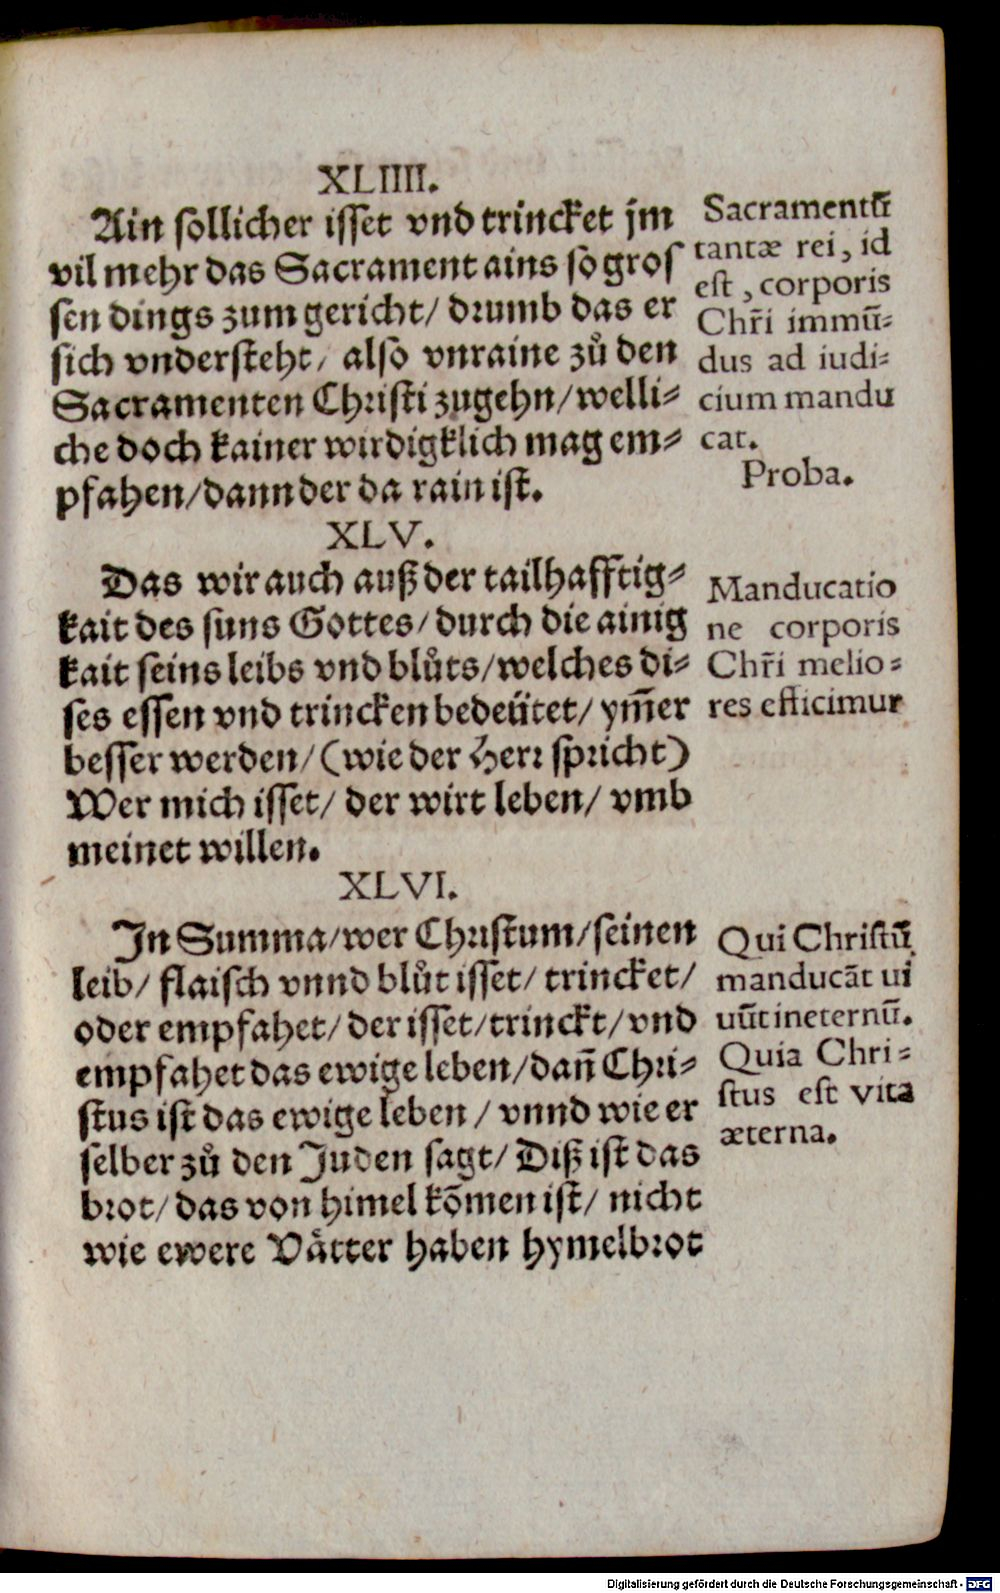 XLIIII.
Ain sollicher isset vnd trincket jm
vil mehr das Sacrament ains so gros
sen dings zum gericht/ drumb das er
sich vndersteht/ also vnraine zů den
Sacramenten Christi zugehn/welli⸗
che doch kainer wirdigklich mag em⸗
pfahen/dann der da rain ist.
Sacramentū
tantæ rei, id
est, corporis
Chr̃i immū⸗
dus ad iudi⸗
cium mandu
cat.
Proba.
XLV.
Das wir auch auß der tailhafftig⸗
kait des suns Gottes/ durch die ainig
kait seins leibs vnd blůts/welches di⸗
ses essen vnd trincken bedeütet/ ym̃er
besser werden/(wie der Herr spricht)
Wer mich isset/ der wirt leben/ vmb
meinet willen.
Manducatio
ne corporis
Chr̃i melio⸗
res efficimur
XLVI.
Jn Summa/wer Christum/seinen
leib/ flaisch vnnd blůt isset/ trincket/
oder empfahet/der isset/trinckt/vnd
empfahet das ewige leben/dañ Chri⸗
stus ist das ewige leben / vnnd wie er
selber zů den Juden sagt/ Diß ist das
brot/das von himel kõmen ist/ nicht
wie ewere Vätter haben hymelbrot
Qui Christū
manducāt ui
uūt in eternū.
Quia Chri⸗
stus est vita
æterna.
Digitalisierung gefördert durch die Deutsche Forschungsgemeinschaft - DFG